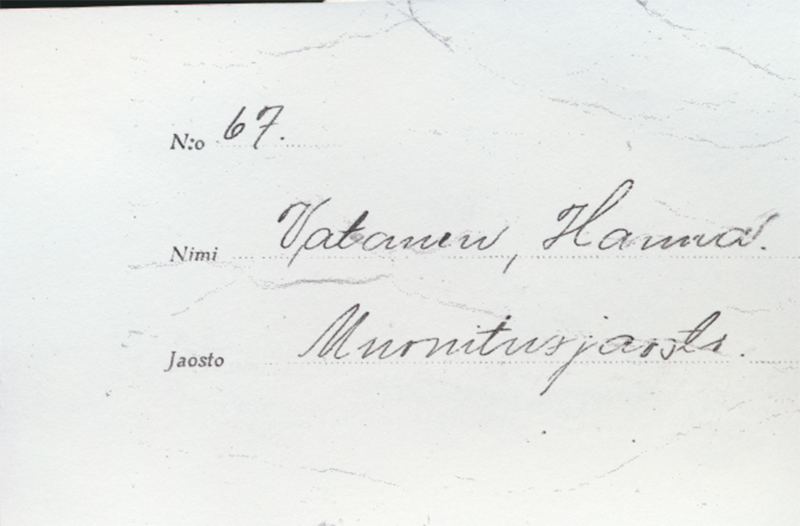 N:o 67.
Nimi Vatanen, Hanna.
Jaosto Muonitusjaosto.